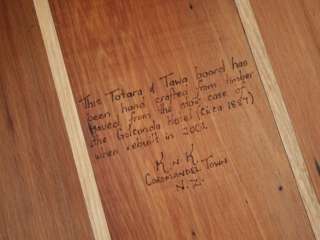 This Totara & Tawa board has
been hand crafted from timber
saved from the stair case of
the Golconda Hotel (circa 1887)
when rebuilt in 2001.
K n K.
COROMANDEL TOWN
N.Z.